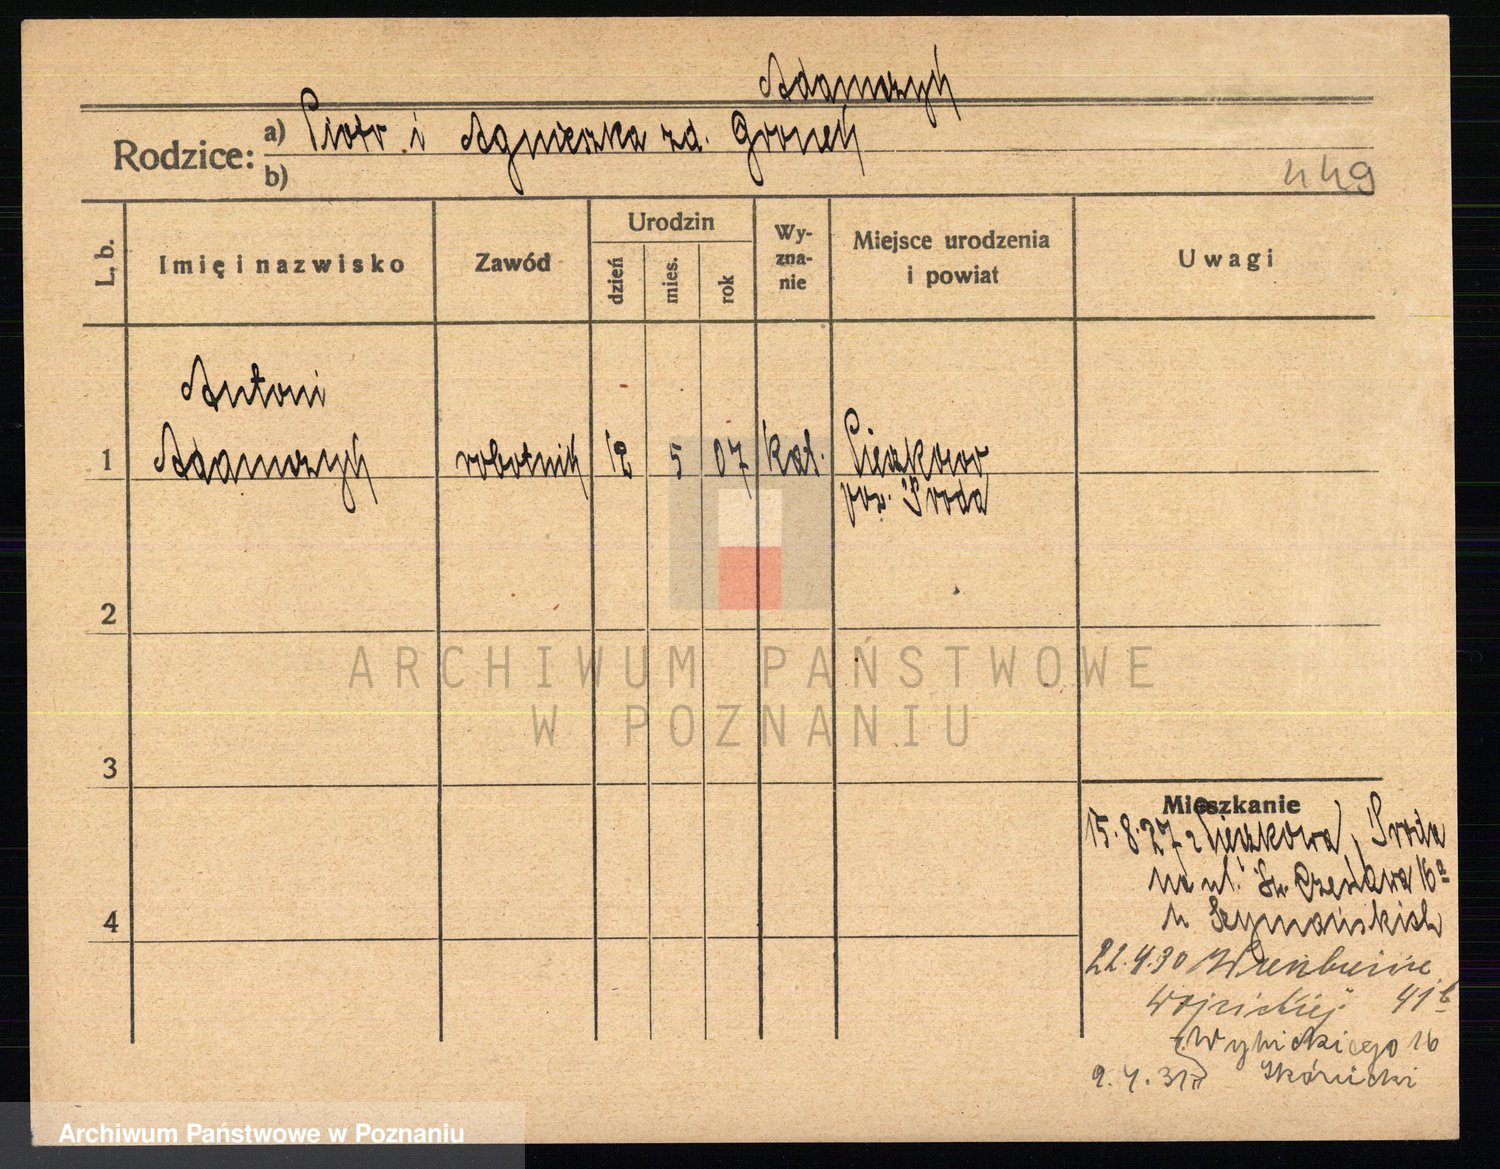 Adamczyk
Rodzice: a) Piotr i Agnieszka zd. Gronek
b)
449
L. b.
Imię i nazwisko
Zawód
Urodzin
dzień
mies.
rok
Wy-
zna-
nie
Miejsce urodzenia
i powiat
Uwagi
Antoni
1 Adamczyk robotnik 12 5 07 kat.
pow. Środa
2
ARCHIWUM PAŃSTWOWE
W POZNANIU
3
Mieszkanie
15.8.27 z Środa
na ul. Św. Czesława 16a
u Szymańskich
22.4.30
41b
Wybickiego 16
9.4.31
4
Archiwum Państwowe w Poznaniu